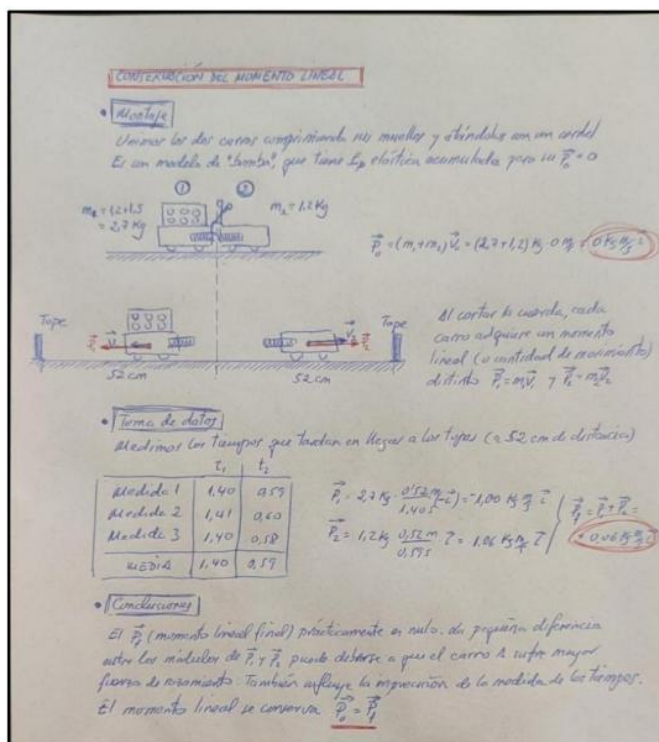 CONSERVACIÓN DEL MOMENTO LINEAL
• Montaje
Unimos los dos carros comprimiendo sus muelles y atándolos con un cordel
Es un modelo de "bomba", que tiene Ep elástica acumulada pero su P₀ = 0
① ②
m₁ = 1,2+1,5
= 2,7 Kg
m₂ = 1,2 Kg
P₀ = (m₁+m₂) V₀ = (2,7+1,2) Kg · 0 m/s = 0 Kg m/s i
Tope
Tope
P₁ V₁
V₂ P₂
52 cm
52 cm
Al cortar la cuerda, cada
carro adquiere un momento
lineal (o cantidad de movimiento)
distinto P₁ = m₁V₁ y P₂ = m₂V₂
• Toma de datos
Medimos los tiempos que tardan en llegar a los topes (a 52 cm de distancia)
t₁ t₂
Medida 1 1,40 0,59
Medida 2 1,41 0,60
Medida 3 1,40 0,58
MEDIA 1,40 0,59
P₁ = 2,7 Kg · 0,52 m / 1,40 s (-i) = -1,00 Kg m/s i
P₂ = 1,2 Kg 0,52 m / 0,59 s · i = 1,06 Kg m/s i
P_f = P₁ + P₂ =
0,06 Kg m/s i
• Conclusiones
El P_f (momento lineal final) prácticamente es nulo. La pequeña diferencia
entre los módulos de P₁ y P₂ puede deberse a que el carro A sufre mayor
fuerza de rozamiento. También influye la imprecisión de la medida de los tiempos.
El momento lineal se conserva P₀ = P_f